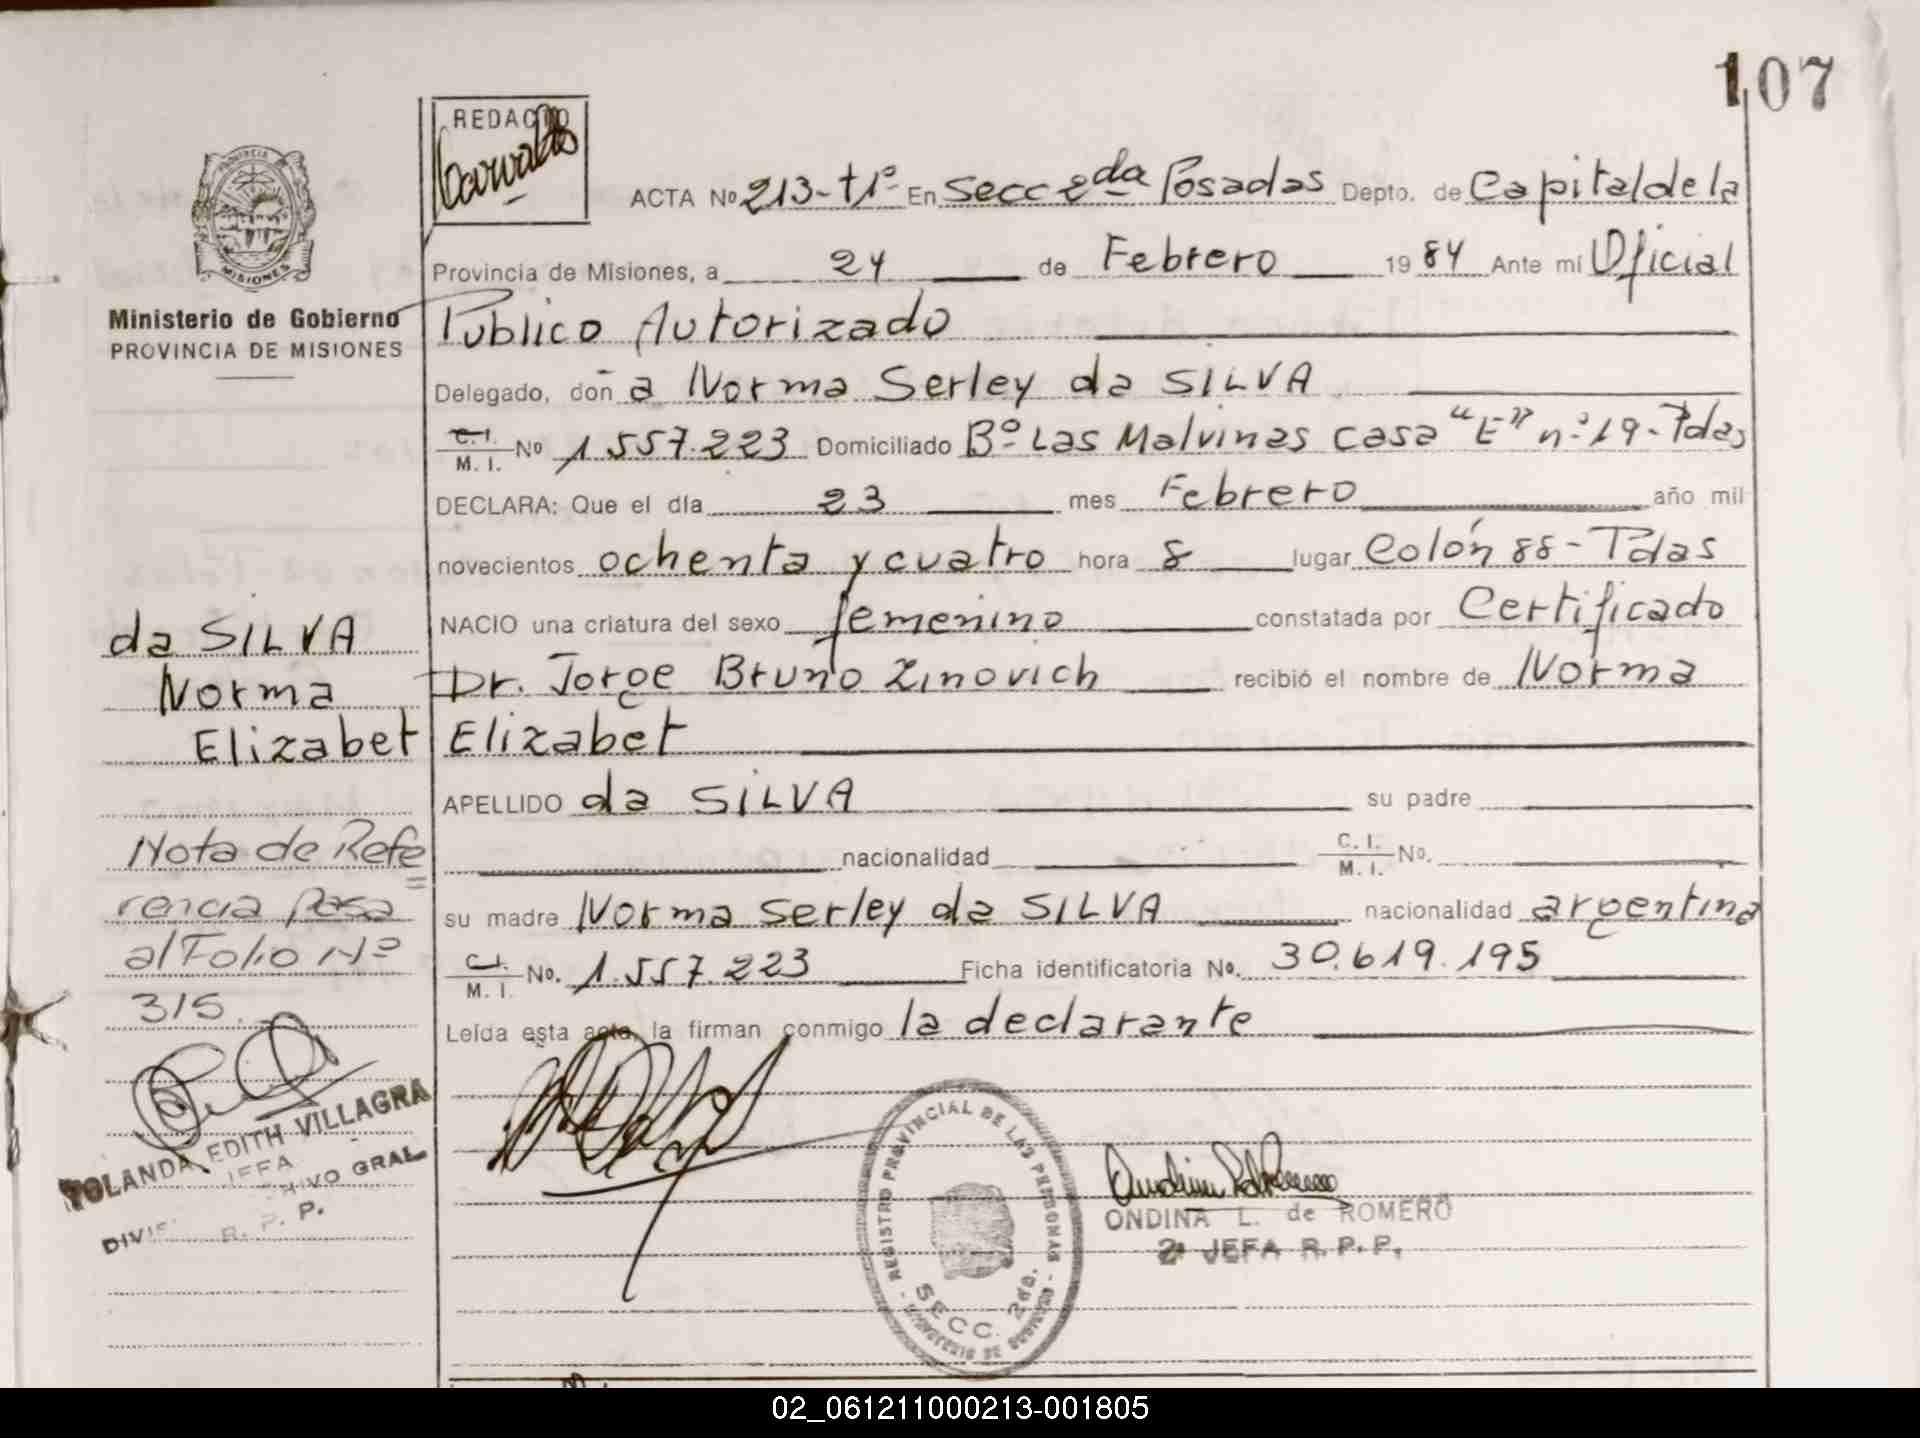 107
REDACTO
ACTA Nº 213-t1º En Secc 2da Posadas Depto. de Capital de la
Provincia de Misiones, a 24 de Febrero 1984 Ante mí Oficial
Ministerio de Gobierno
PROVINCIA DE MISIONES
PROVINCIA
MISIONES
Público Autorizado
Delegado, don a Norma Serley da SILVA
C. I.
M. I. Nº 1.557.223 Domiciliado Bº Las Malvinas casa "E" nº 19-Pdas
DECLARA: Que el día 23 mes Febrero año mil
novecientos ochenta y cuatro hora 8 lugar Colón 88-Pdas
NACIO una criatura del sexo femenino constatada por Certificado
Dr. Jorge Bruno Zinovich recibió el nombre de Norma
Elizabet
da SILVA
Norma
Elizabet
APELLIDO da SILVA su padre
nacionalidad C. I.
M. I. No.
su madre Norma Serley da SILVA nacionalidad argentina
C. I.
M. I. No. 1.557.223 Ficha identificatoria No. 30.619.195
Leída esta acta, la firman conmigo la declarante
Nota de Refe
rencia Pasa
al Folio Nº
315.
YOLANDA EDITH VILLAGRA
JEFA
ARCHIVO GRAL
R. P. P.
REGISTRO PROVINCIAL DE LAS PERSONAS
SECC. 2da.
MINISTERIO DE GOBIERNO
ONDINA L. de ROMERO
2ª JEFA R. P. P.
02_061211000213-001805